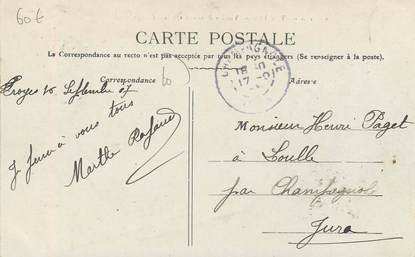 60€
CARTE POSTALE
La Correspondance au recto n'est pas acceptée par tous les pays étrangers (Se renseigner à la poste).
Correspondance
Adresse
CHAMPAGNOLE
Troyes 16 Septembre 07
à vous tous
Marthe
Monsieur Henri Paget
à Loulle
par Champagnole
Jura